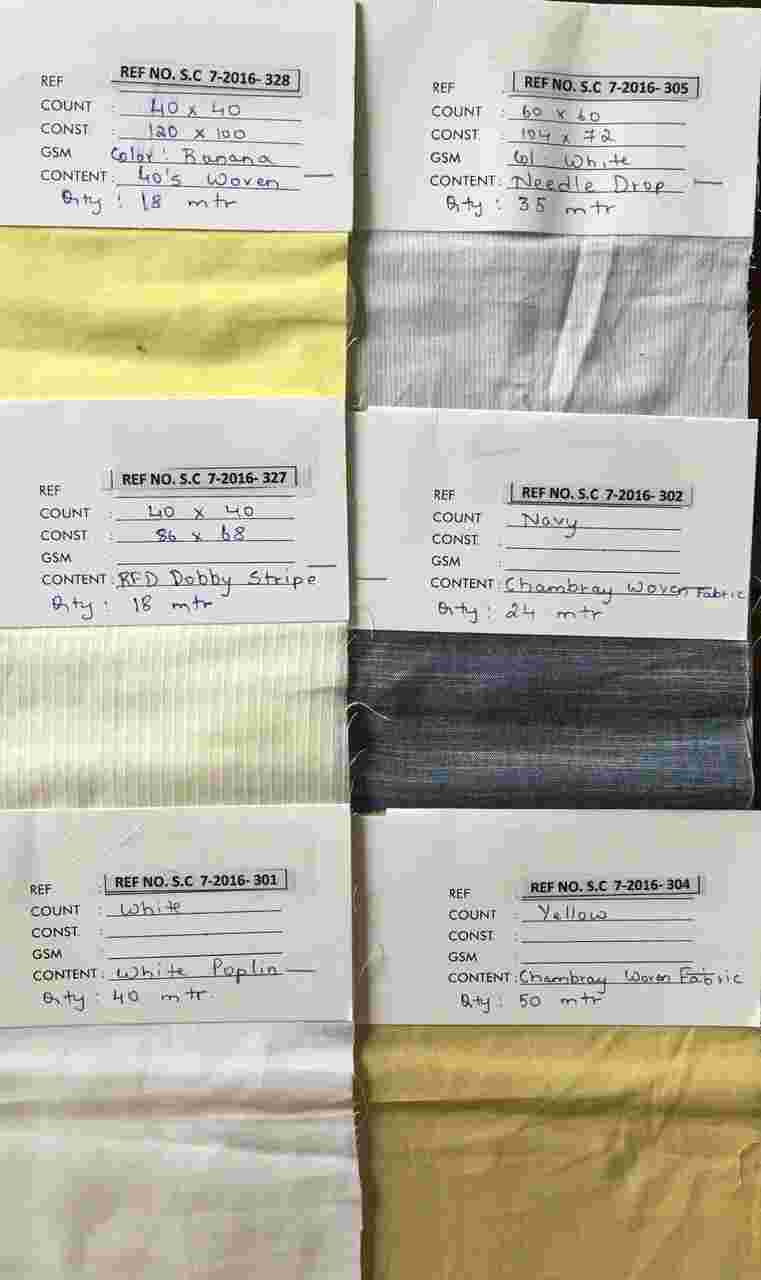 REF REF NO. S.C 7-2016- 328
COUNT : 40 x 40
CONST : 120 x 100
GSM Color : Banana
CONTENT : 40's Woven
Qty : 18 mtr
REF REF NO. S.C 7-2016- 305
COUNT : 60 x 60
CONST : 104 x 72
GSM Col : White
CONTENT : Needle Drop
Qty : 35 mtr
REF REF NO. S.C 7-2016- 327
COUNT : 40 x 40
CONST : 86 x 68
GSM :
CONTENT : RFD Dobby Stripe
Qty : 18 mtr
REF REF NO. S.C 7-2016- 302
COUNT : Navy
CONST. :
GSM :
CONTENT : Chambray Woven Fabric
Qty : 24 mtr
REF : REF NO. S.C 7-2016- 301
COUNT : White
CONST. :
GSM :
CONTENT : White Poplin
Qty : 40 mtr.
REF REF NO. S.C 7-2016- 304
COUNT : Yellow
CONST. :
GSM :
CONTENT : Chambray Woven Fabric
Qty : 50 mtr